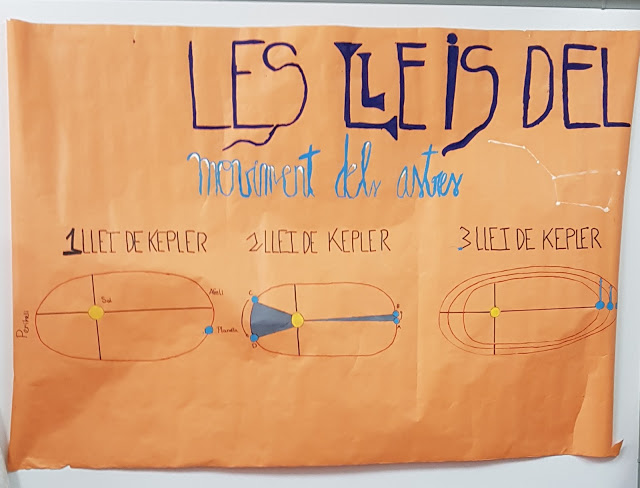 LES LLEIS DEL
moviment dels astres
1 LLEI DE KEPLER
2 LLEI DE KEPLER
3 LLEI DE KEPLER
Sol
Afeli
Periheli
Planeta
C
D
B
A